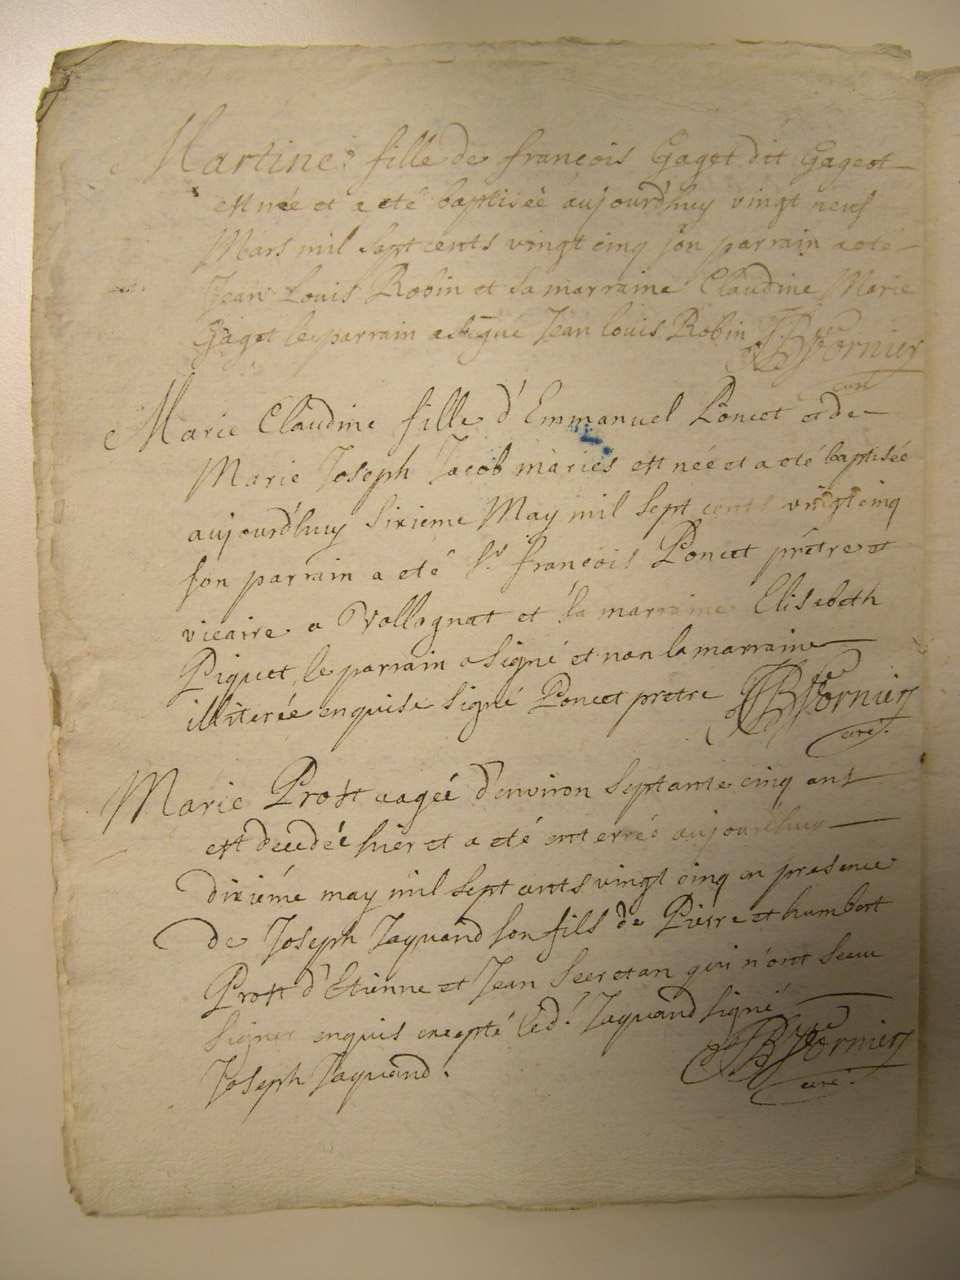 Martine fille de françois Gaget dit Gageot
est née et a eté baptiseé aujourdhuy vingt neuf
Mars mil sept cents vingt cinq son parrain a eté
Jean Louis Robin et sa marraine Claudine Marie
Gaget le parrain a signé Jean louis Robin JB Vernier
curé
Marie Claudine fille d'Emmanuel Poncet et de
Marie Joseph Jacob mariés est née et a eté baptisée
aujourdhuy sixieme May mil sept cents vingt cinq
son parrain a eté Sr. françois Poncet prétre et
vicaire a Vallognat et sa marraine Elisabeth
Piquet, le parrain a signé et non la marraine
illiterée enquise signé Poncet pretre JB Vernier
curé.
Marie Prost aageé d'environ septante cinq ans
est decedeé hier et a eté enterrée aujourdhuy
dixiéme may mil sept cents vingt cinq en presence
de Joseph Jaquand son fils de Pierre et humbert
Prost d'Etienne et Jean Secretan qui n'ont sceu
signer enquis excepté led. Jaquand signé
Joseph Jaquand. JB Vernier
curé.